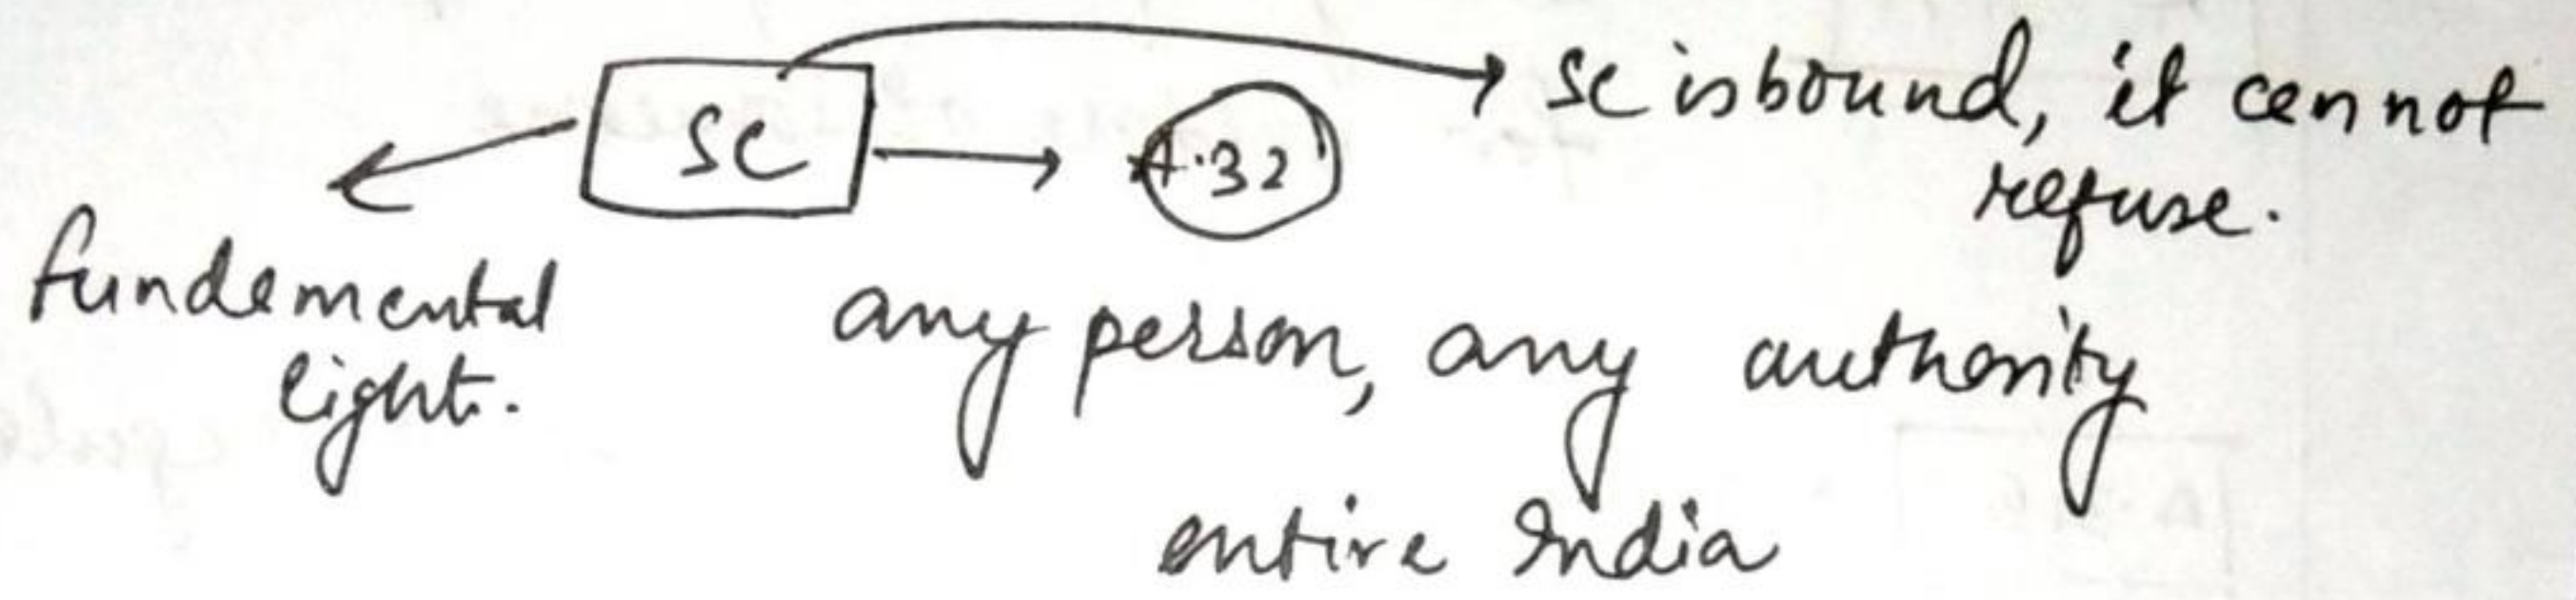 SC
A.32
SC is bound, it cennot
refuse.
fundemental
light.
any person, any authority
entire India